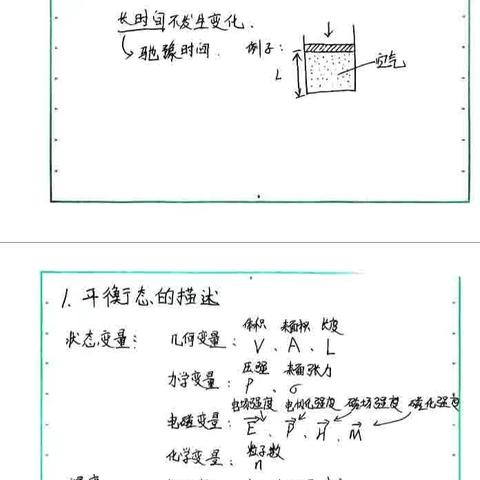 长时间不发生变化.
驰豫时间. 例子:
空气
L
1. 平衡态的描述
体积 表面积 长度
状态变量: 几何变量: V、A、L
压强 表面张力
力学变量: P、σ
电场强度 电极化强度 磁场强度 磁化强度
电磁变量: E、P、H、M
粒子数
化学变量: n